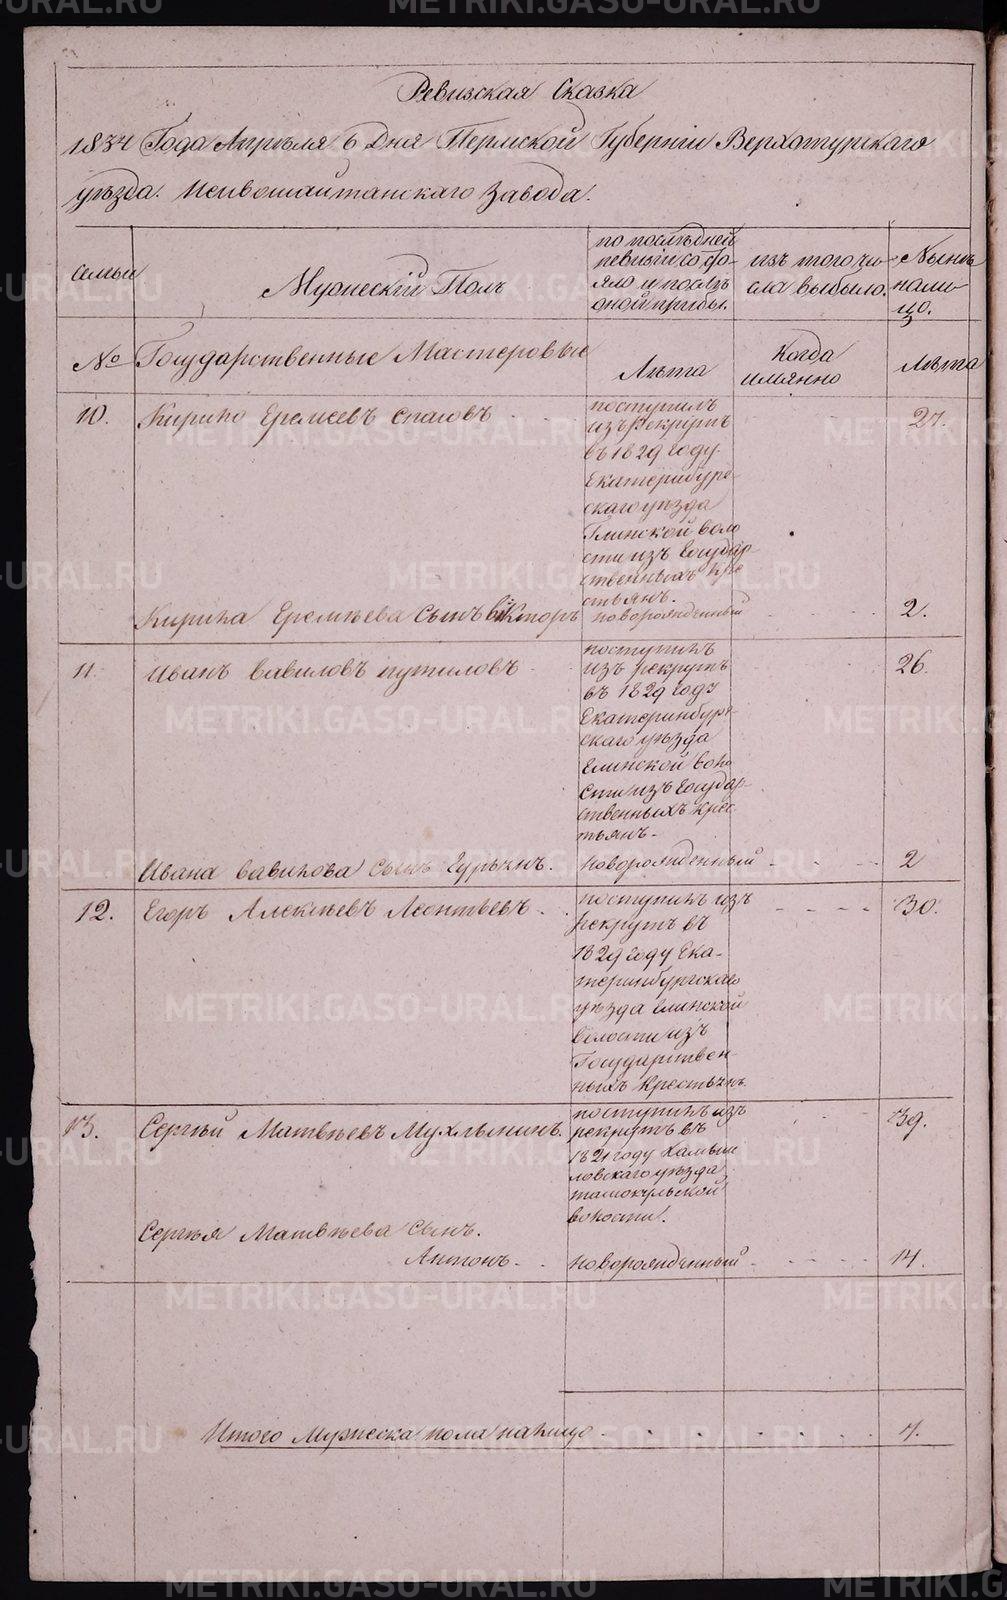 Ревизская Сказка
1834 Года Апреля 6 Дня Пермской Губернiи Верхотурскаго
уѣзда. Невошайтанскаго Завода.
семьи
Мужескiй Полъ
по послѣдней
ревизiи состо-
яло и послѣ
оной прибы.
изъ того чи-
сла выбыло.
Нынѣ
нали-
цо.
№
Государственные Мастеровые
Лѣта
Когда
имянно
Лѣта
10.
Кирило Еремеевъ
27.
поступилъ
изъ рекрутъ
въ 1829 году
Екатеринбург-
скаго уѣзда
Глинской воло
сти изъ Государ-
ственныхъ кре
стьянъ.
Кирила Еремѣева Сынъ Вiкторъ новорожденный 2.
11.
Иванъ Вавиловъ путиловъ
26.
поступилъ
изъ рекрутъ
въ 1829 году
Екатеринбург-
скаго уѣзда
Глинской воло
сти изъ Государ-
ственныхъ крес
тьянъ.
Ивана Вавилова Сынъ новорожденный 2
12. Егоръ Алексѣевъ Леонтьевъ
поступилъ изъ
30.
рекрутъ въ
1829 году Ека-
теринбургскаго
уѣзда Глинской
волости изъ
Государствен-
ныхъ Крестьянъ.
13. Сергѣй Матвѣевъ Мухлынинъ.
поступилъ изъ
39.
рекрутъ въ
1821 году Камыш
ловскаго уѣзда
тамакульской
волости.
Сергѣя Матвѣева Сынъ.
Антонъ новорожденный 14.
Итого Мужеска пола налицо 7.
METRIKI.GASO-URAL.RU